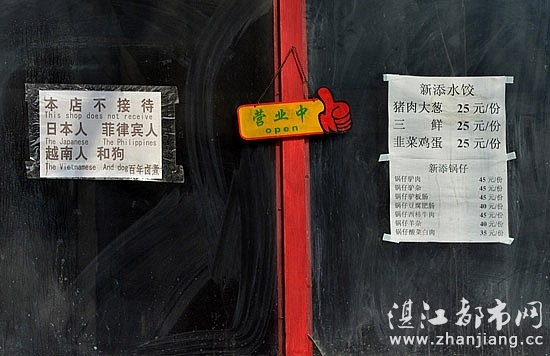 本店不接待
This shop does not receive
日本人 菲律宾人
The Japanese The Philippines
越南人 和狗
The Vietnamese And dog
百年卤煮
营业中
open
新添水饺
猪肉大葱 25元/份
三鲜 25元/份
韭菜鸡蛋 25元/份
新添锅仔
锅仔驴肉 45元/份
锅仔驴杂 45元/份
锅仔驴板肠 45元/份
锅仔豆腐肥肠 40元/份
锅仔西柿牛肉 45元/份
锅仔羊杂 40元/份
锅仔酸菜白肉 35元/份
湛江都市网
www.zhanjiang.cc